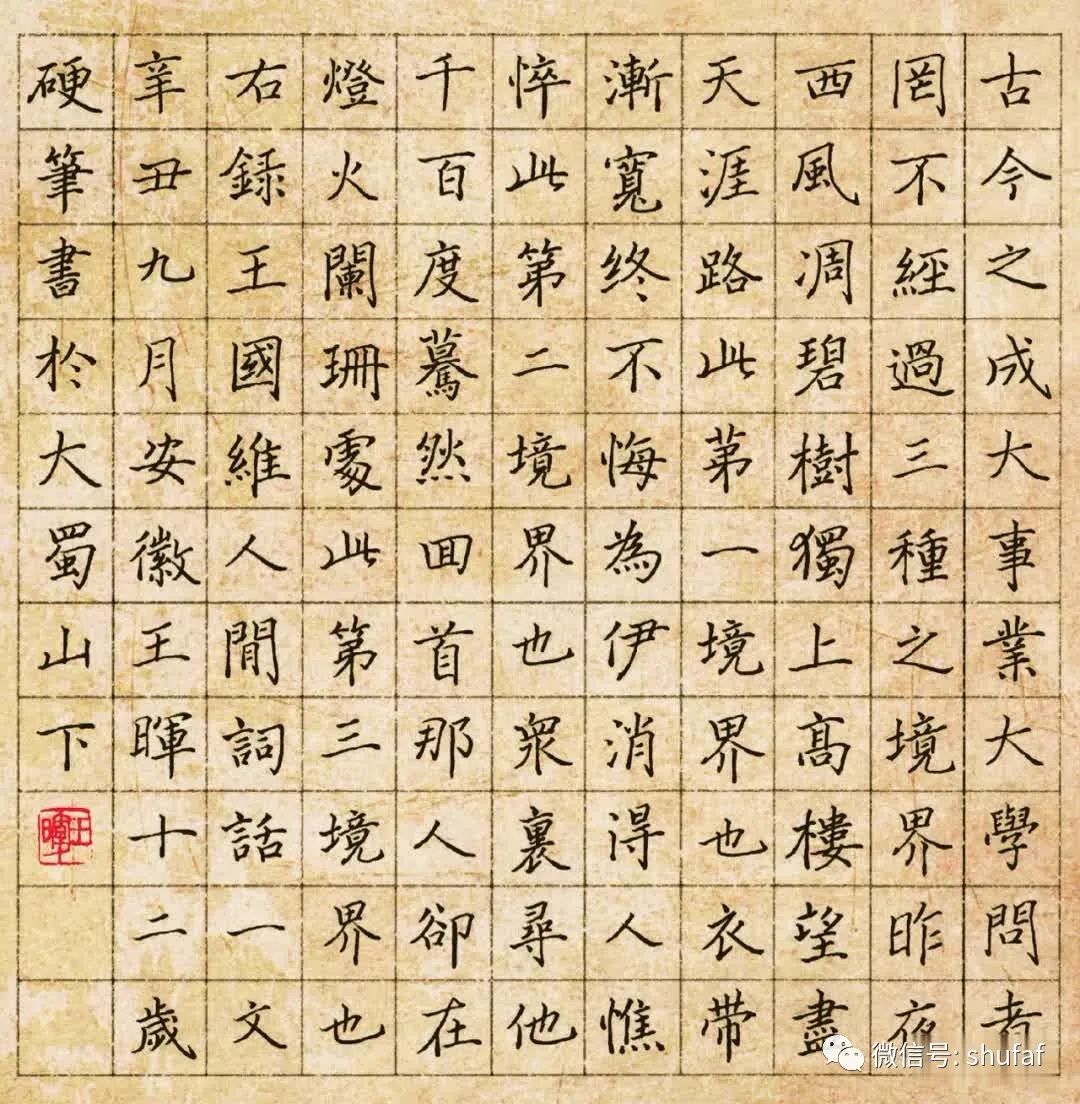 古今之成大事業大學問者
罔不經過三種之境界昨夜
西風凋碧樹獨上高樓望盡
天涯路此第一境界也衣带
漸寬终不悔為伊消得人憔
悴此第二境界也衆裏尋他
千百度驀然回首那人卻在
燈火闌珊處此第三境界也
右録王國維人間詞話一文
辛丑九月安徽王暉十二歲
硬筆書於大蜀山下
王暉
微信号: shufaf